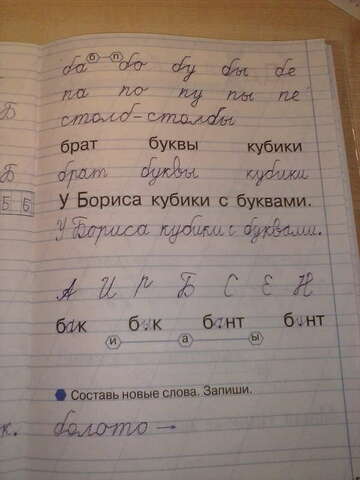 ба б п бо бу бы бе
па по пу пы пе
столб-столбы
Б
брат буквы кубики
Б брат буквы кубики
Б Б У Бориса кубики с буквами.
У Бориса кубики с буквами.
А И р Б С Е Н
бак бык бант бинт
и а ы
Составь новые слова. Запиши.
к. болото →